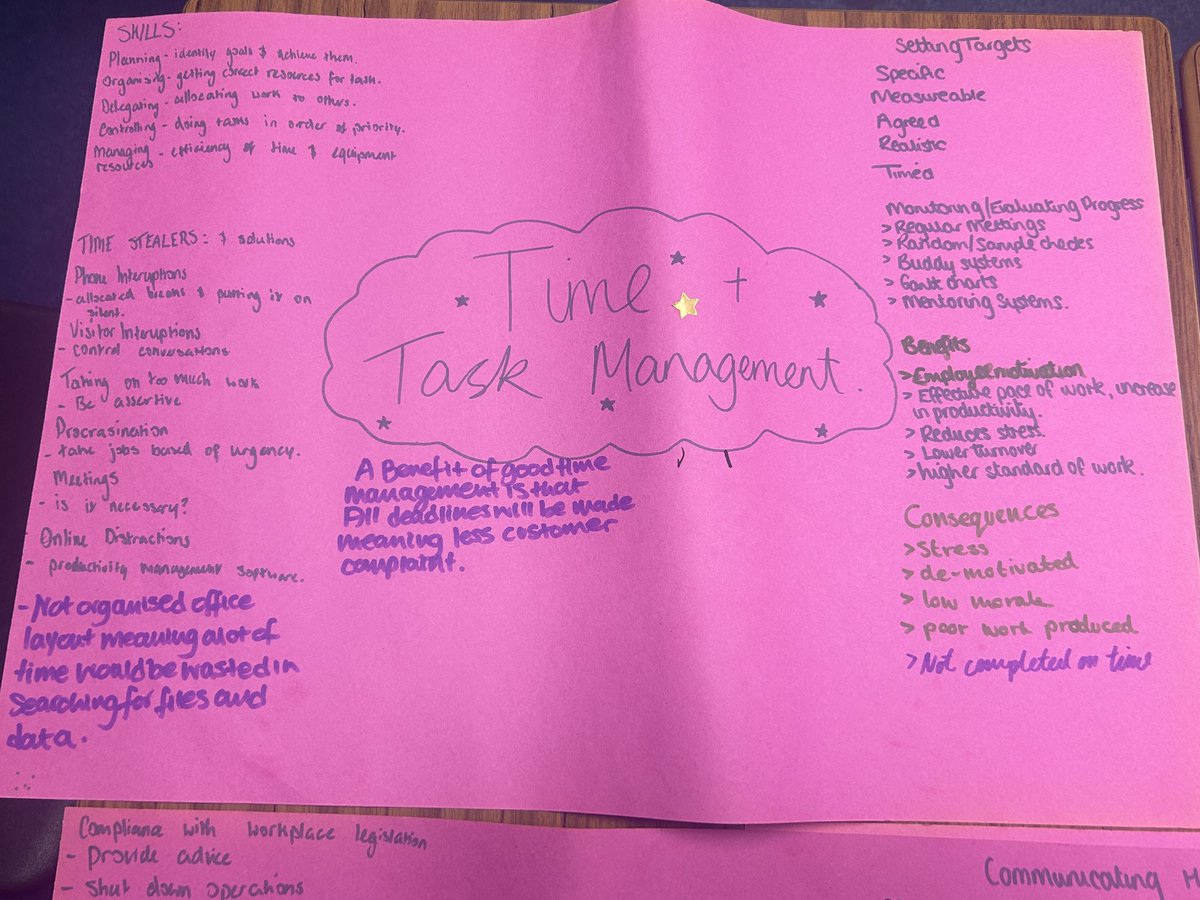 SKILLS:
Planning - identify goals & achieve them.
Organising - getting correct resources for task.
Delegating - allocating work to others.
Controlling - doing tasks in order of priority.
Managing - efficiency of time & equipment
resources
TIME STEALERS: & solutions
Phone Interuptions
- allocated breaks & putting it on
silent.
Visitor Interuptions
- control conversations.
Taking on too much work
- Be assertive
Procrasination
- take jobs based of urgency.
Meetings
- is it necessary?
Online Distractions
- productivity management software.
- Not organised office
layout meaning a lot of
time would be wasted in
searching for files and
data.
Time +
Task Management.
A Benefit of good time
management is that
All deadlines will be made
meaning less customer
complaint.
Setting Targets
Specific
Measureable
Agreed
Realistic
Timed
Monitoring/Evaluating Progress
> Regular Meetings
> Random/Sample checks
> Buddy systems
> Gantt charts
> Mentoring Systems.
Benefits
> Employee motivation
> Effective pace of work, increase
in productivity.
> Reduces stress.
> Lower turnover
> higher standard of work.
Consequences
> Stress
> de-motivated
> low morale
> poor work produced
> Not completed on time
Compliance with workplace legislation
- Provide advice
- Shut down operations
Communicating M